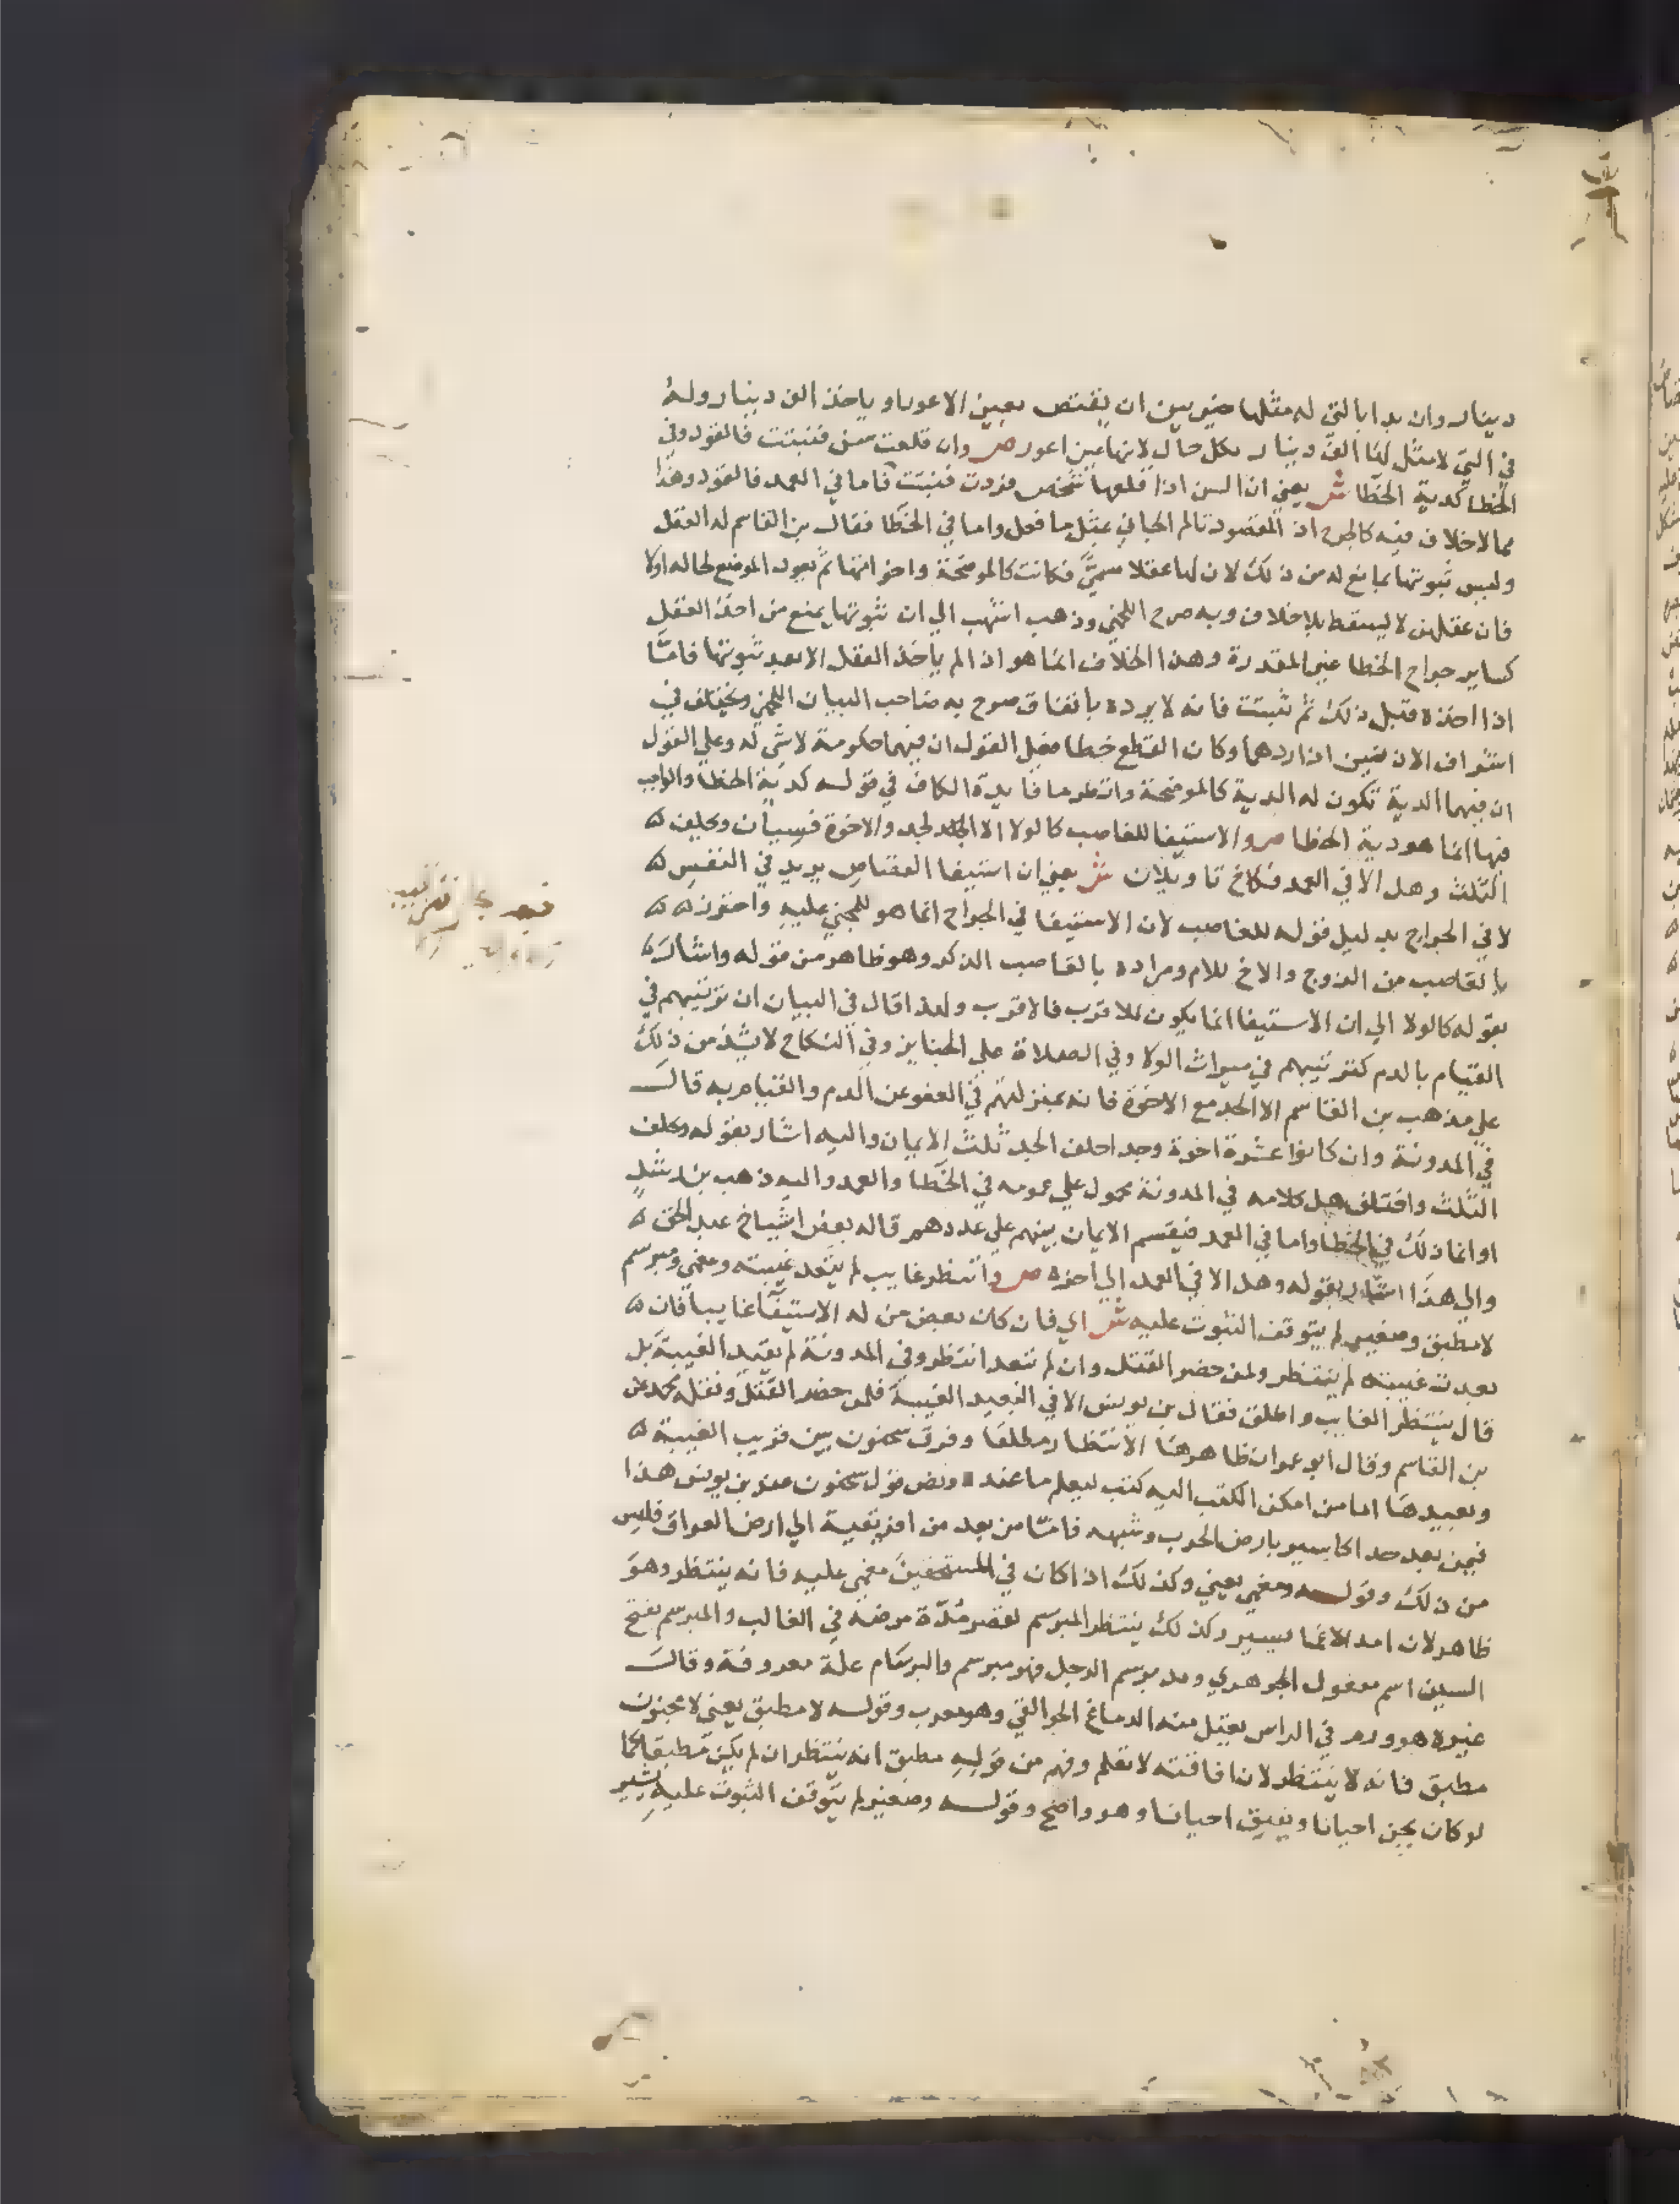 دينار وان بدا بالتي له مثلها خير بين ان يقتص بعين الاعور او ياخذ الف دينار وله
في التي لا مثل لها الف دينار بكل حال لانها عين اعور ص وان قلعت سن فنبتت فالقود وفي
الخطا كدية الخطا ش يعني ان السن اذا قلعها شخص فردت فنبتت فاما في العمد فالقود وهذا
مما لا خلاف فيه كالجرح اذ المقصود تالم الجاني بمثل ما فعل واما في الخطا فقال بن القاسم له العقل
وليس ثبوتها بمانع له من ذلك لان لها عقلا مسمي فكانت كالموضحة واخواتها ثم يعود الموضع لحاله اولا
فان عقلهن لا يسقط بلا خلاف وبه صرح اللخمي وذهب اشهب الي ان ثبوتها يمنع من اخذ العقل
كساير جراح الخطا غير المقدرة وهذا الخلاف انما هو اذا لم ياخذ العقل الا بعد ثبوتها فامّا
اذا اخذه قبل ذلك ثم ثبتت فانه لا يرده باتفاق صرح به صاحب البيان اللخمي ويختلف في
اشراف الاذنين اذا ردهما وكان القطع خطا فعلي القول ان فيهما حكومة لا شي له وعلي القول
ان فيهما الدية تكون له الدية كالموضحة وانظر ما فايدة الكاف في قوله كدية الخطا والواجب
فيها انما هو دية الخطا ص والاستيفا للعاصب كالولا الا الجد والاخوة فسيان ويحلف
الثلث وهل الا في العمد فكاخ تاويلان ش يعني ان استيفا القصاص يريد في النفس
لا في الجراح بدليل قوله للعاصب لان الاستيفا في الجراح انما هو للمجني عليه واحترز
بالعاصب من الزوج والاخ للام ومراده بالعاصب الذكر وهو ظاهر من قوله واشار
بقوله كالولا الي ان الاستيفا انما يكون للاقرب فالاقرب ولهذا قال في البيان ان ترتيبهم في
القيام بالدم كترتيبهم في ميراث الولا وفي الصلاة علي الجنايز وفي النكاح لا يشذ من ذلك
علي مذهب بن القاسم الا الجد مع الاخوة فانه بمنزلتهم في العفو عن الدم والقيام به قال
في المدونة وان كانوا عشرة اخوة وجد احلف الجد ثلث الايمان واليه اشار بقوله ويحلف
الثلث واختلف هل كلامه في المدونة محمول علي عمومه في الخطا والعمد واليه ذهب بن رشد
او انما ذلك في الخطا واما في العمد فيقسم الايمان بينهم علي عددهم قاله بعض اشياخ عبد الحق
والي هذا اشار بقوله وهل الا في العمد الي اخره ص وانتظر غايب لم يتعد غيبته ومغمي ومبرسم
لا مطبق وصغير لم يتوقف الثبوت عليه ش اي فان كان بعض من له الاستيفا غايبا فان
بعدت غيبته لم ينتظر ولمن حضر القتل وان لم تبعد انتظر وفي المدونة لم يقيد الغيبة بل
قال ينتظر الغايب واطلق فقال بن يونس الا في البعيد الغيبة فلمن حضر القتل ونقله محمد عن
بن القاسم وقال ابو عمران ظاهرها الانتظار مطلقا وفرق سحنون بين قريب الغيبة
وبعيدها اما من امكن الكتب اليه كتب ليعلم ما عنده ونص قول سحنون عند بن يونس هذا
فيمن بعد جدا كاسير بارض الحرب وشبهه فامّا من بعد من افريقية الي ارض العراق فليس
من ذلك وقوله ومغمي يعني وكذلك اذا كان في المستحقين مغمي عليه فانه ينتظر وهو
ظاهر لان امد الاغما يسير وكذلك ينتظر المبرسم لقصر مدّة مرضه في الغالب والمبرسم بفتح
السين اسم مفعول الجوهري وقد برسم الرجل فهو مبرسم والبرسام علة معروفة وقال
غيره هو ورم في الراس يقتل منه الدماغ الجواليقي وهو معرب وقوله لا مطبق يعني لا مجنون
مطبق فانه لا ينتظر لان افاقته لا تعلم وفهم من قوله مطبق انه ينتظر ان لم يكن مطبقا كما
لو كان يجن احيانا ويفيق احيانا وهو واضح وقوله وصغير لم يتوقف الثبوت عليه يشير